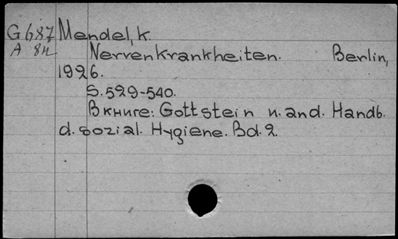 G687 Mendel, K.
A 84 Nervenkrankheiten. Berlin,
1926.
S. 529-540.
В книге: Gottstein u. and. Handb.
d. sozial. Hygiene. Bd. 2.